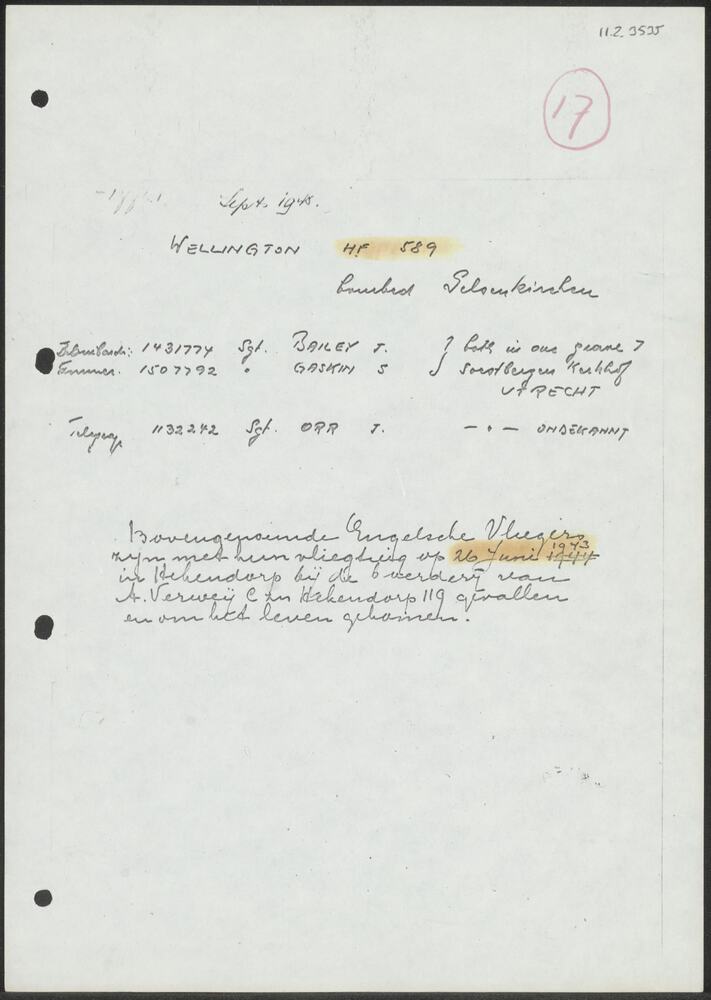 11.2.3535
17
Sept. 1945.
WELLINGTON HF 589
bombed Gelsenkirchen
1431774 Sgt. BAILEY J. } both in one grave 7
1507792 " GASKIN S } Soestbergen Kerkhof
UTRECHT
Telegr. 1132242 Sgt. ORR J. — " — ONBEKANNT
Bovengenoemde Engelsche Vliegers
zijn met hun vliegtuig op 26 Juni 1943 1944
in Hekendorp bij de boerderij van
A. Verweij C zn Hekendorp 119 gevallen
en om het leven gekomen.